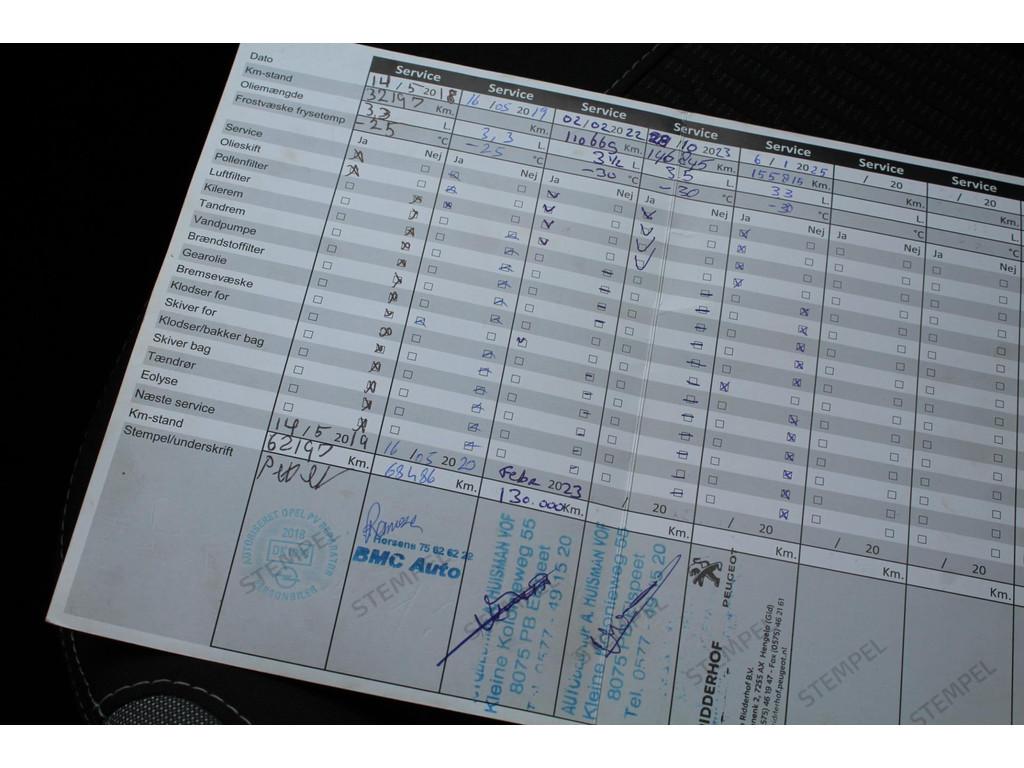 Dato
Km-stand
Oliemængde
Frostvæske frysetemp
Service
Olieskift
Pollenfilter
Luftfilter
Kilerem
Tandrem
Vandpumpe
Brændstoffilter
Gearolie
Bremsevæske
Klodser for
Skiver for
Klodser/bakker bag
Skiver bag
Tændrør
Eolyse
Næste service
Km-stand
Stempel/underskrift
Service
14/5 2018
32197 Km.
3,3 L.
-25 °C
Ja Nej
14/5 2019
62197 Km.
AUTORISERET OPEL
2018
STEMPEL
Service
16/05 2019
Km.
3,3 L.
-25 °C
Ja Nej
16/05 2020
68486 Km.
Horsens 75 62 62 22
BMC Auto
STEMPEL
Service
02/02 2022
110669 Km.
3 1/2 L.
-30 °C
Ja Nej
Febr 2023
130.000 Km.
HUISMAN VOF
Kleine Kolonieweg 55
8075 PB Elspeet
Tel. 0577 - 4915 20
Service
28/10 2023
146845 Km.
3,5 L.
-30 °C
Ja Nej
/ 20
Km.
A. HUISMAN VOF
Kleine Kolonieweg 55
8075 Elspeet
Tel. 0577 - 4915 20
Service
6/1 2025
155815 Km.
33 L.
-30 °C
Ja Nej
/ 20
Km.
PEUGEOT
RIDDERHOF
Ridderhof B.V.
7255 AX Hengelo (Gld)
(0575) 46 19 47 - Fax (0575) 46 21 61
ridderhof.peugeot.nl
STEMPEL
Service
/ 20
Km.
L.
°C
Ja Nej
/ 20
Km.
STEMPEL
Service
/ 20
Km.
L.
°C
Ja Nej
/ 20
Km.
STEMPEL